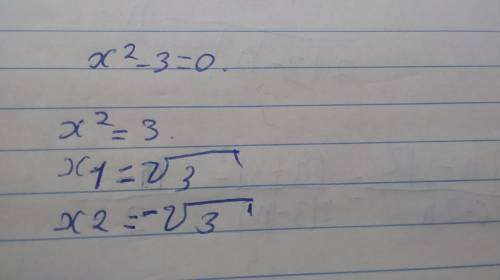 x² - 3 = 0.
x² = 3.
x1 = √3
x2 = -√3